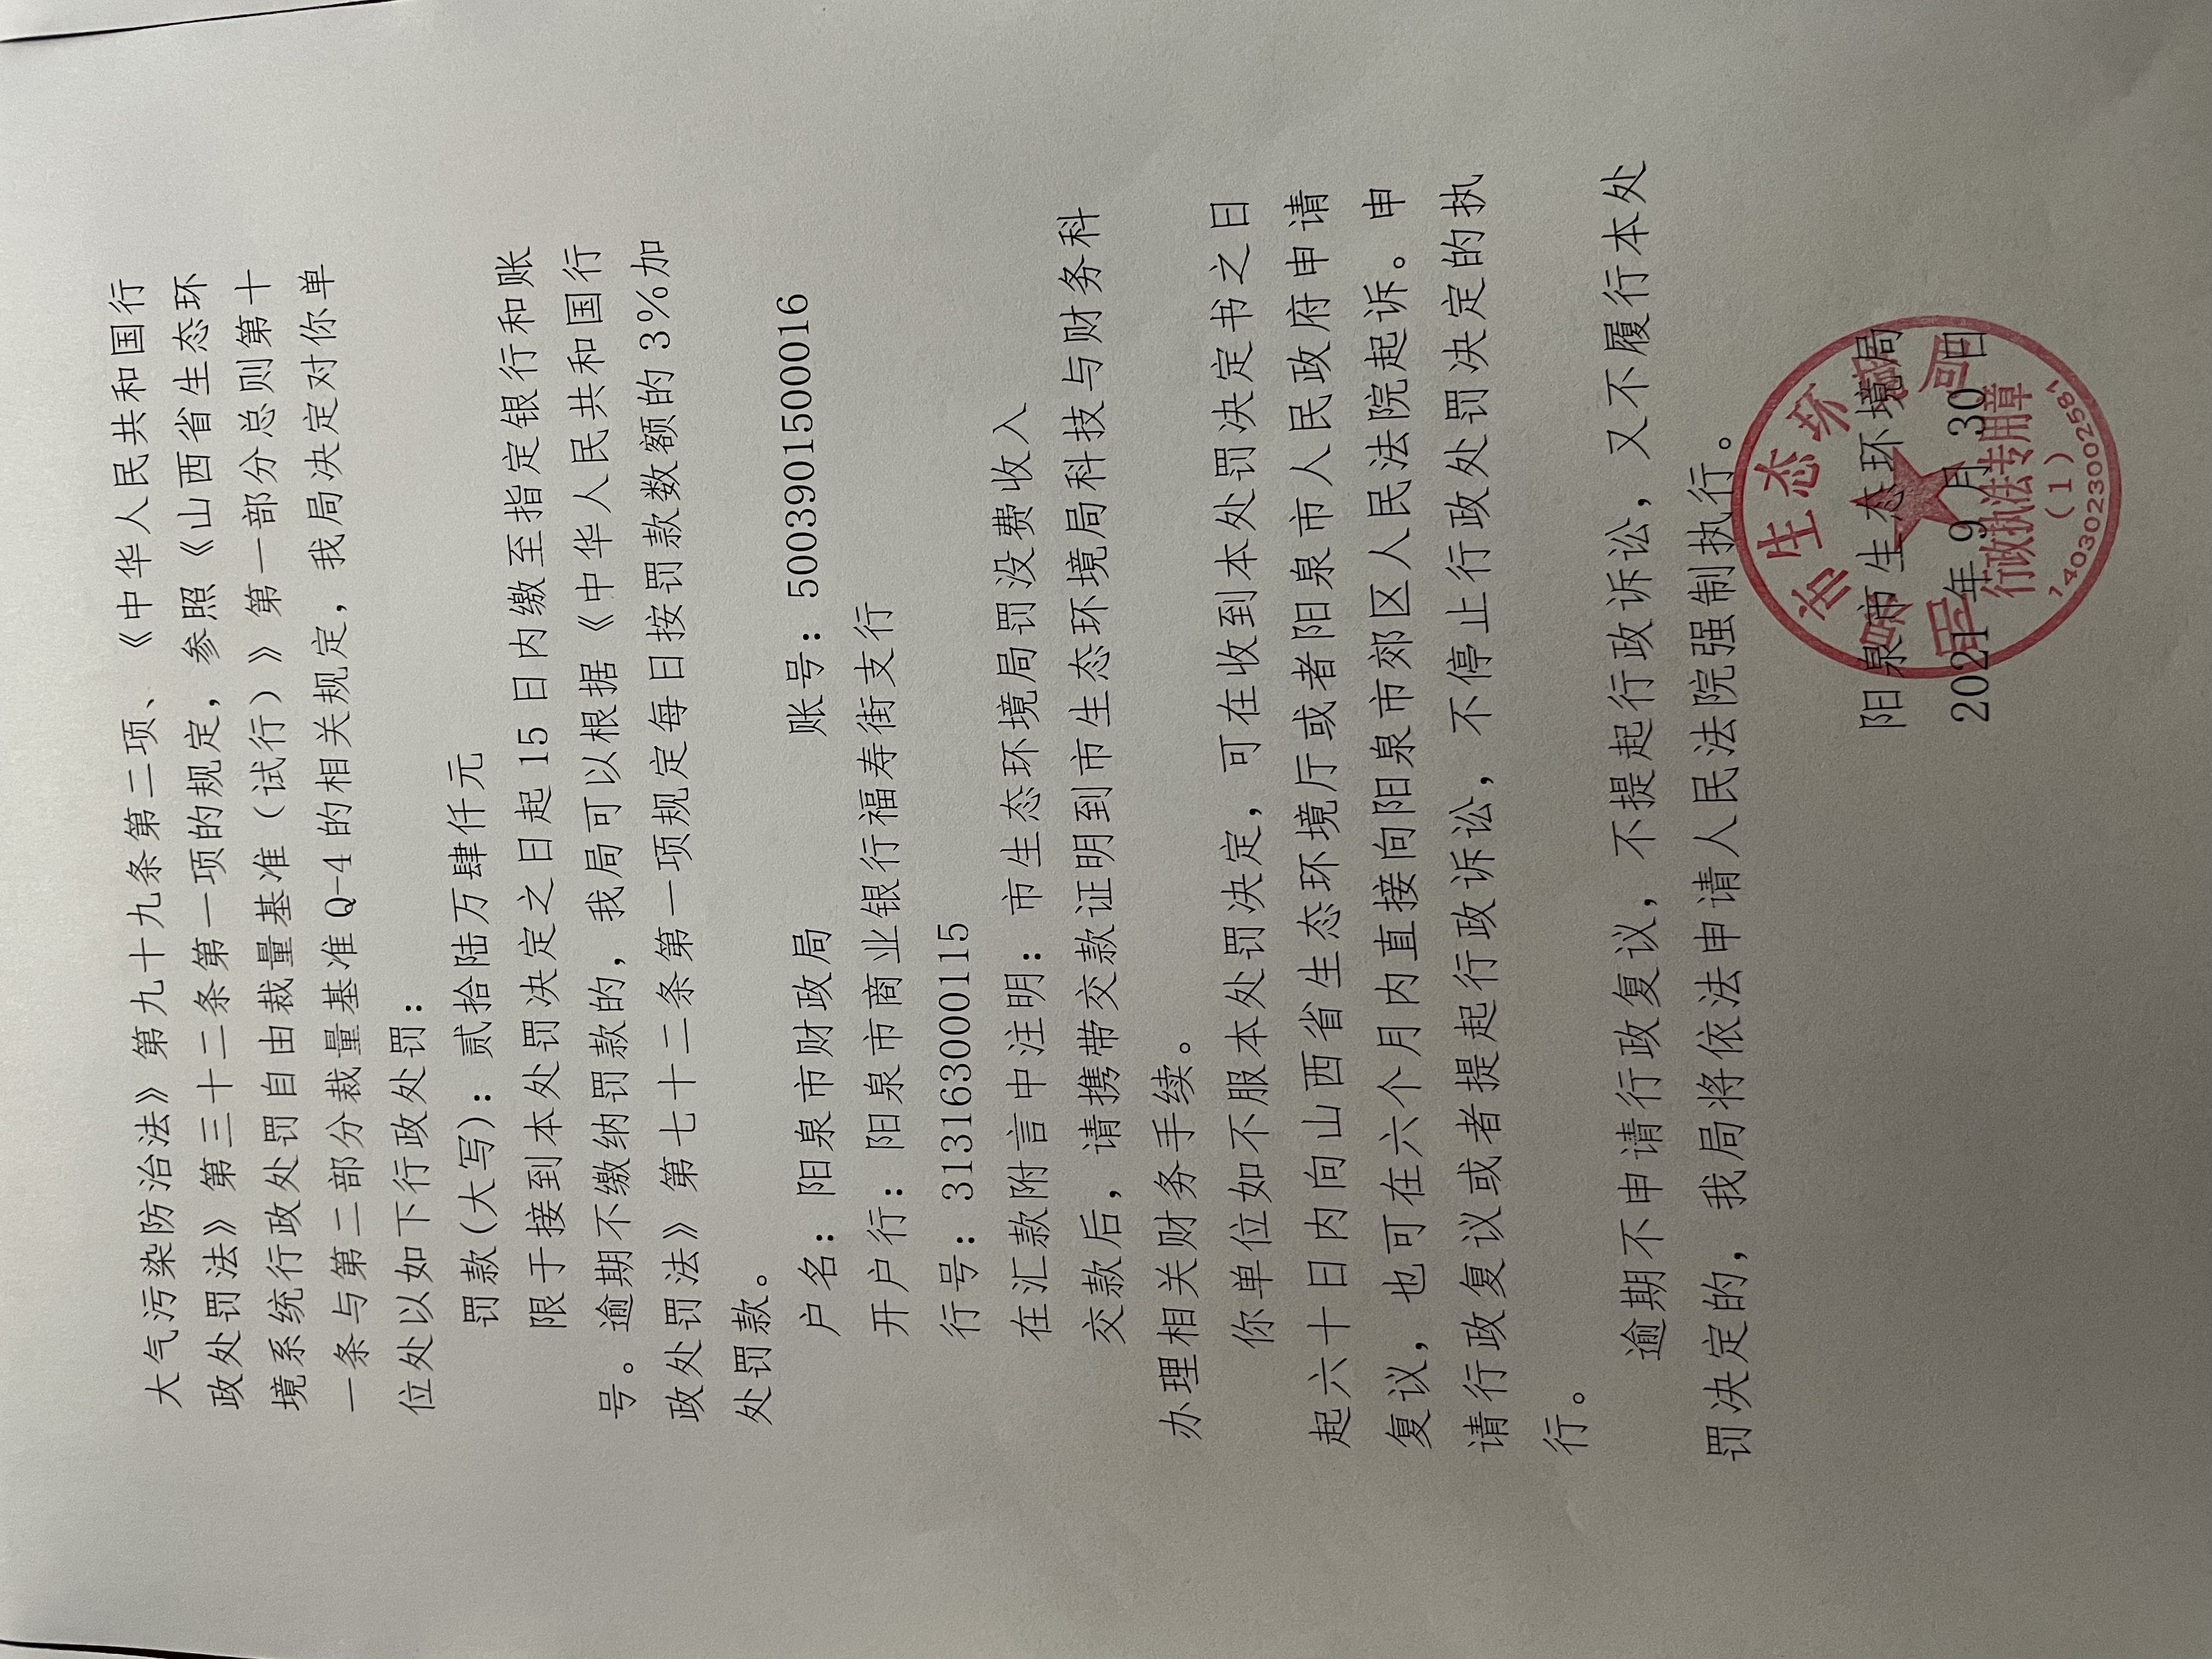 大气污染防治法》第九十九条第二项、《中华人民共和国行
政处罚法》第三十二条第一项的规定，参照《山西省生态环
境系统行政处罚自由裁量基准（试行）》第一部分总则第十
一条与第二部分裁量基准 Q-4 的相关规定，我局决定对你单
位处以如下行政处罚：
罚款（大写）：贰拾陆万肆仟元
限于接到本处罚决定之日起 15 日内缴至指定银行和账
号。逾期不缴纳罚款的，我局可以根据《中华人民共和国行
政处罚法》第七十二条第一项规定每日按罚款数额的 3%加
处罚款。
户 名：阳泉市财政局 账号：500390150000016
开户行：阳泉市商业银行福寿街支行
行号：313163000115
在汇款附言中注明：市生态环境局罚没费收入
交款后，请携带交款证明到市生态环境局科技与财务科
办理相关财务手续。
你单位如不服本处罚决定，可在收到本处罚决定书之日
起六十日内向山西省生态环境厅或者阳泉市人民政府申请
复议，也可在六个月内直接向阳泉市郊区人民法院起诉。申
请行政复议或者提起行政诉讼，不停止行政处罚决定的执
行。
逾期不申请行政复议，不提起行政诉讼，又不履行本处
罚决定的，我局将依法申请人民法院强制执行。
阳泉市生态环境局
2021 年 9 月 30 日
市生态环境局
行政执法专用章
（1）